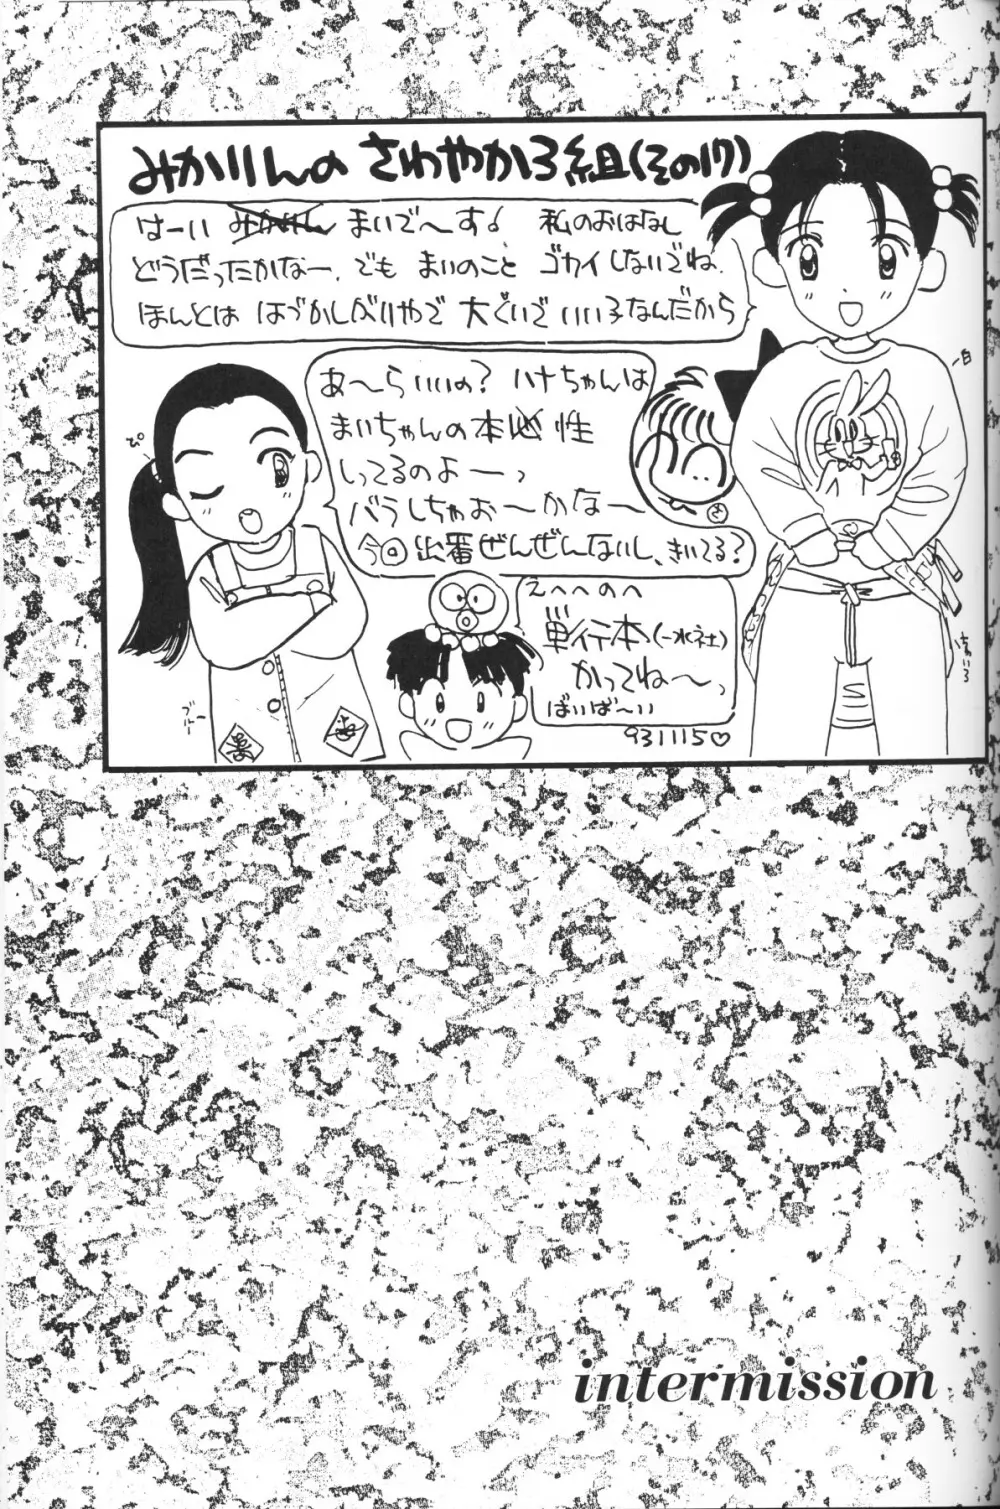 みかりんの さわやか3組(その17)
はーい みかりん まいで〜す♪ 私のおはなし
どうだったかなー、でも まいのこと ゴカイしないでね、
ほんとは はづかしがりやで 大ぐいで いい子なんだから
白
あ〜らいいの? ハナちゃんは
まいちゃんの本性
しってるのよーっ
バラしちゃお〜かな〜
今回出番ぜんぜんないし、きいてる?
ぴ
ブルー
えへへのへ
単行本(一水社)
かってね〜っ
ばいば〜い
931115♡
intermission